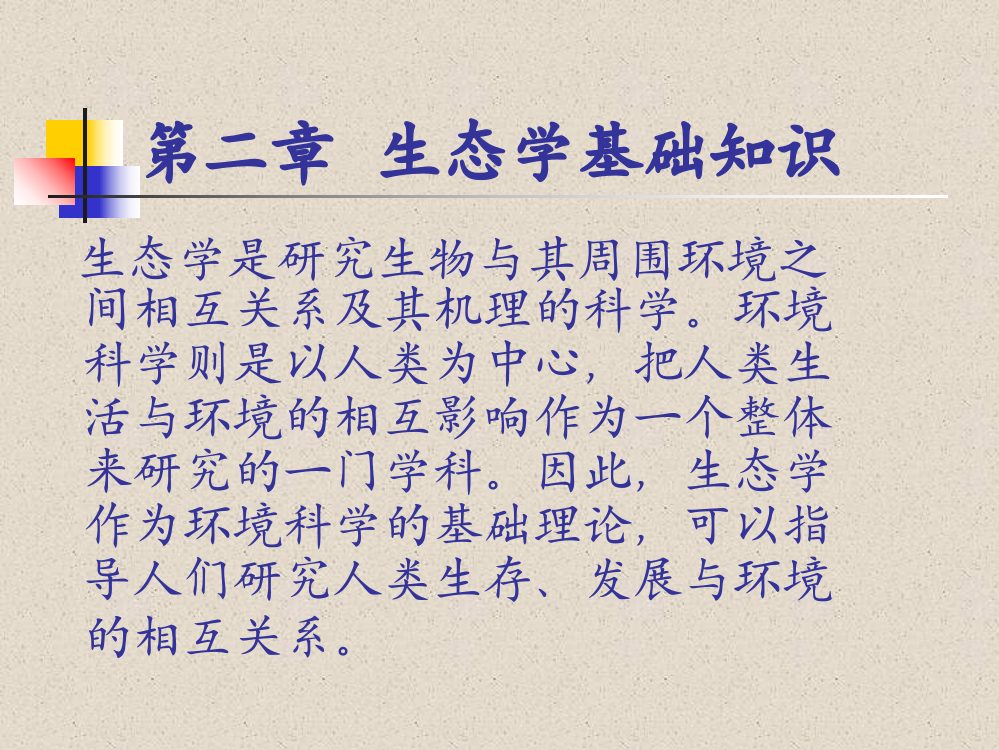 第二章 生态学基础知识
生态学是研究生物与其周围环境之
间相互关系及其机理的科学。环境
科学则是以人类为中心，把人类生
活与环境的相互影响作为一个整体
来研究的一门学科。因此，生态学
作为环境科学的基础理论，可以指
导人们研究人类生存、发展与环境
的相互关系。